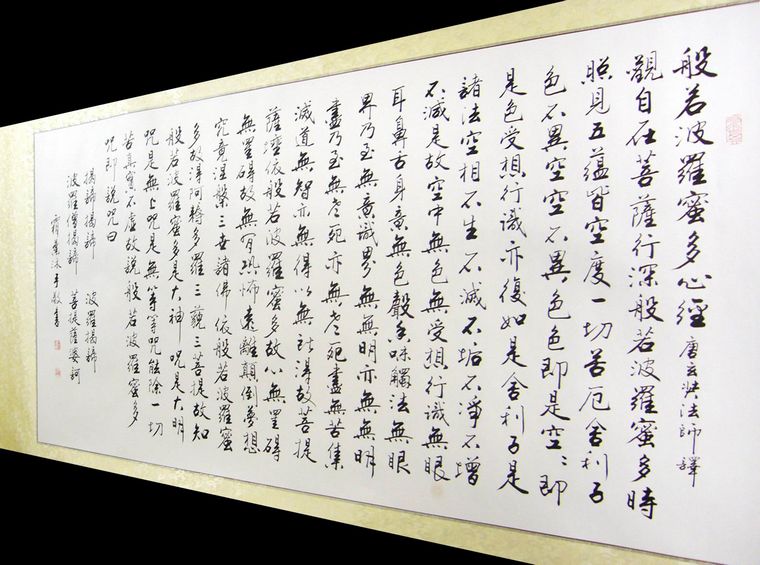 般若波羅蜜多心經 唐玄奘法師譯
觀自在菩薩行深般若波羅蜜多時
照見五蘊皆空度一切苦厄舍利子
色不異空空不異色色即是空〻即
是色受想行識亦復如是舍利子是
諸法空相不生不滅不垢不淨不增
不減是故空中無色無受想行識無眼
耳鼻舌身意無色聲香味觸法無眼
界乃至無意識界無無明亦無無明
盡乃至無老死亦無老死盡無苦集
滅道無智亦無得以無所得故菩提
薩埵依般若波羅蜜多故心無罣礙
無罣礙故無有恐怖遠離顛倒夢想
究竟涅槃三世諸佛依般若波羅蜜
多故得阿耨多羅三藐三菩提故知
般若波羅蜜多是大神咒是大明
咒是無上咒是無等等咒能除一切
苦真實不虛故說般若波羅蜜多
咒即說咒曰
揭諦揭諦 波羅揭諦
波羅僧揭諦 菩提薩婆訶
沐手敬書